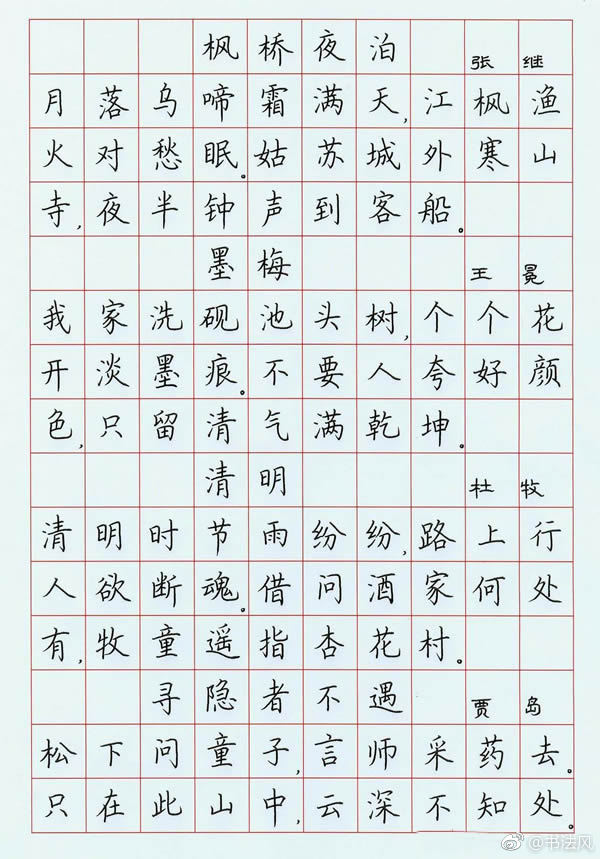 枫桥夜泊 张继
月落乌啼霜满天,江枫渔
火对愁眠。姑苏城外寒山
寺,夜半钟声到客船。
墨梅 王冕
我家洗砚池头树,个个花
开淡墨痕。不要人夸好颜
色,只留清气满乾坤。
清明 杜牧
清明时节雨纷纷,路上行
人欲断魂。借问酒家何处
有,牧童遥指杏花村。
寻隐者不遇 贾岛
松下问童子,言师采药去。
只在此山中,云深不知处。
@书法风